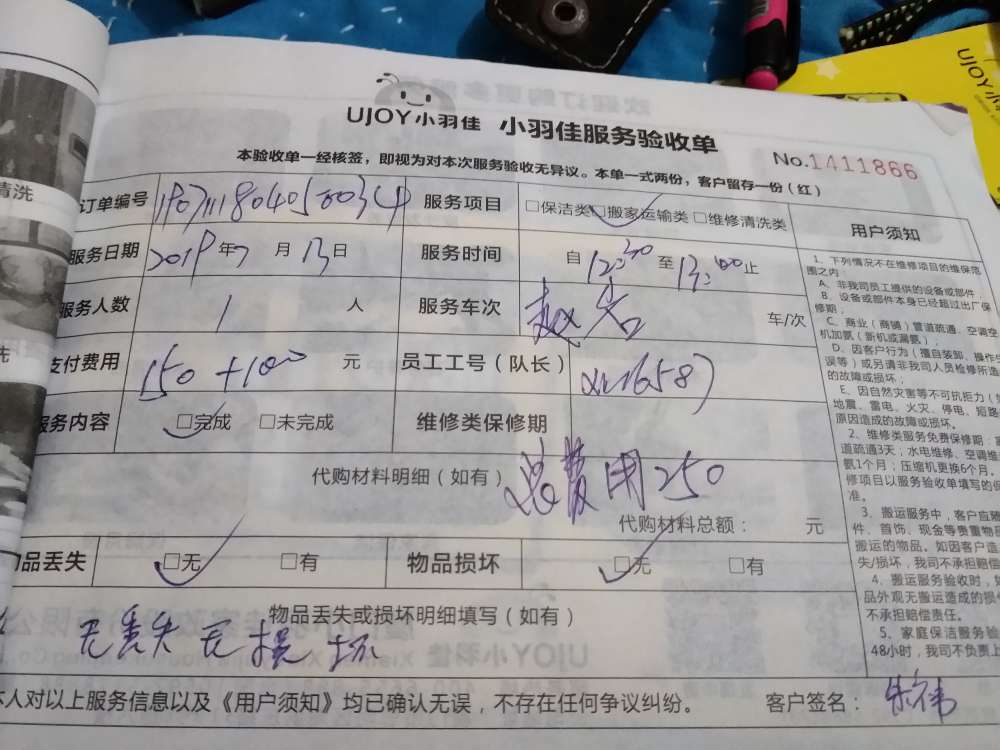 UJOY小羽佳 小羽佳服务验收单
No.1411866
本验收单一经核签，即视为对本次服务验收无异议。本单一式两份，客户留存一份（红）
订单编号 服务项目 □保洁类□搬家运输类 □维修清洗类
服务日期 2019年7月13日 服务时间 自12:30至13:00止
服务人数 1 人 服务车次 车/次
支付费用 150+100 元 员工工号（队长）
服务内容 □完成 □未完成 维修类保修期
代购材料明细（如有） 总费用250
代购材料总额： 元
物品丢失 □无 □有 物品损坏 □无 □有
物品丢失或损坏明细填写（如有）
无丢失无损坏
本人对以上服务信息以及《用户须知》均已确认无误，不存在任何争议纠纷。 客户签名：朱祎
用户须知
1、下列情况不在维修项目的维保范
围之内：
A、非我司员工提供的设备或部件，
B、设备或部件本身已经超过出厂保
修期；
C、商业（商铺）管道疏通、空调空
机加氨（新机或漏氨）；
D、因客户行为（擅自装卸、操作
误等）或另请非我司人员检修所造
的故障或损坏；
E、因自然灾害等不可抗拒力（如
地震、雷电、火灾、停电、短路
原因造成的故障或损坏。
2、维修类服务免费保修期：
道疏通3天；水电维修、空调维
氨1个月；压缩机更换6个月。
修项目以服务验收单填写的保
准。
3、搬运服务中，客户宜
件、首饰、现金等贵重物品
搬运的物品。如因客户造
失/损坏，我司不承担赔偿
4、搬运服务验收时，如
品外观无搬运造成的损
不承担赔偿责任。
5、家庭保洁服务验
48小时，我司不负责上
清洗
洗
UJOY小